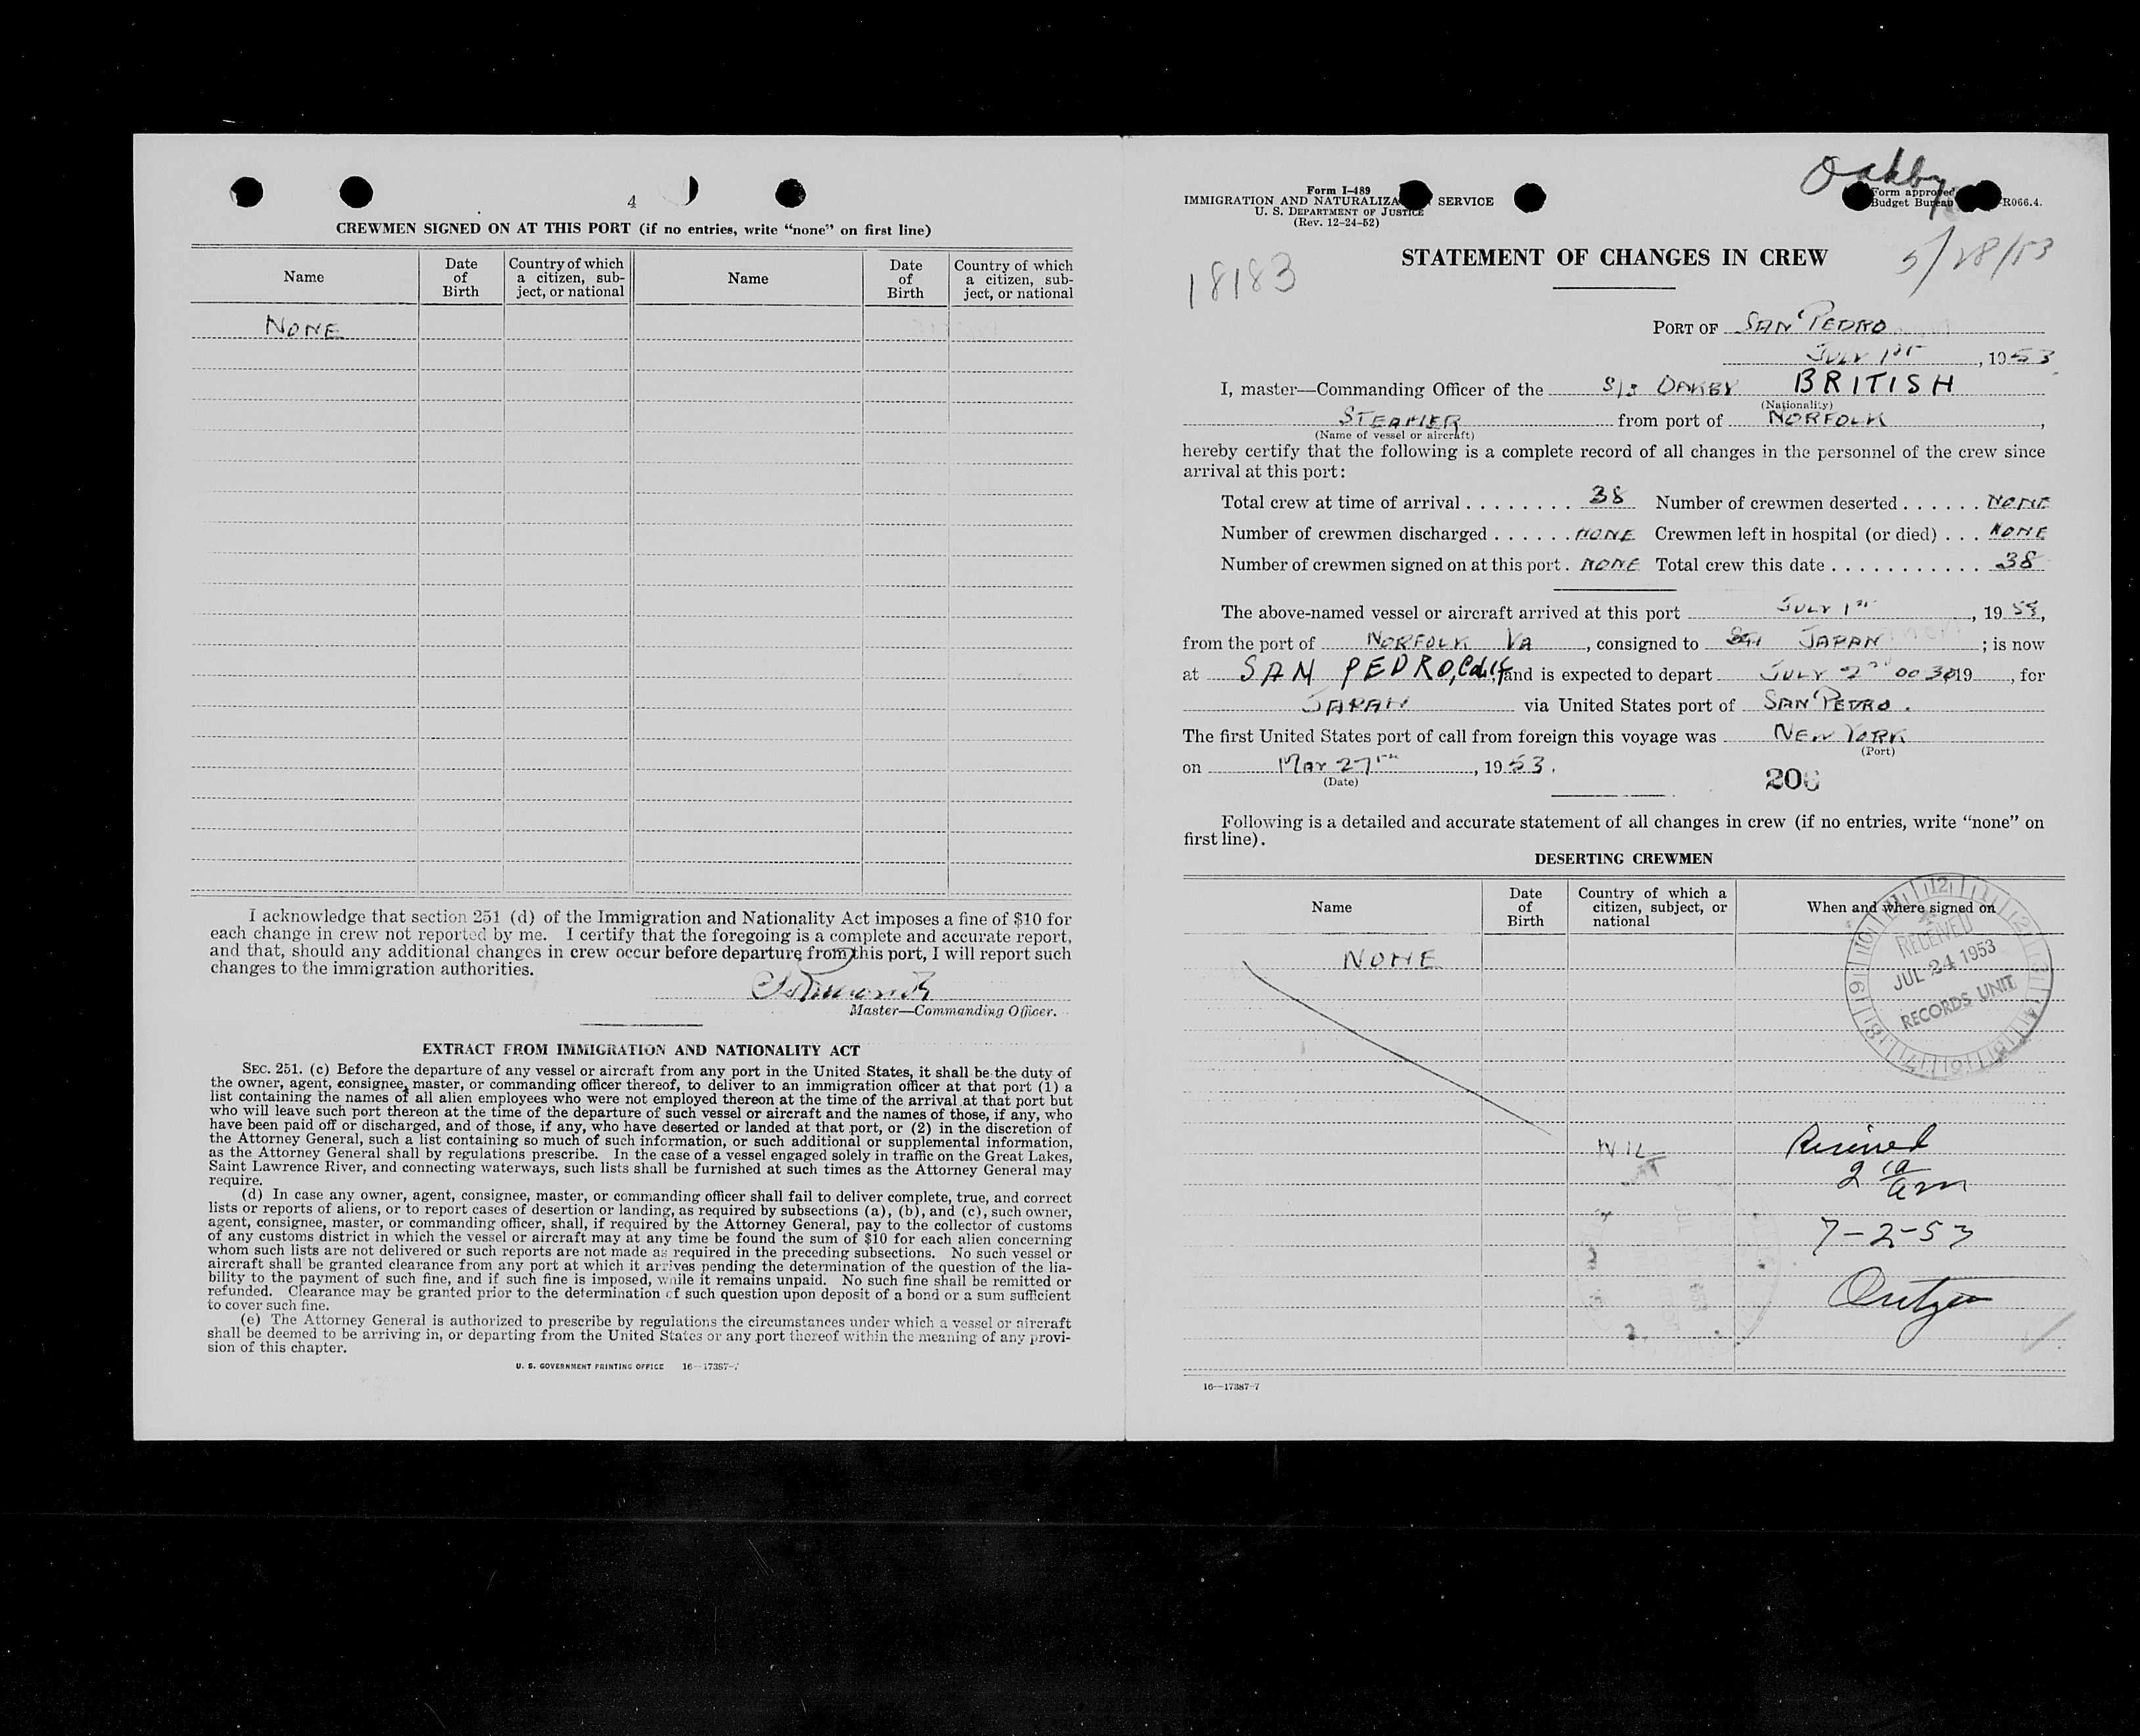 4
CREWMEN SIGNED ON AT THIS PORT (if no entries, write “none” on first line)
Name
Date of Birth
Country of which a citizen, subject, or national
Name
Date of Birth
Country of which a citizen, subject, or national
NONE
I acknowledge that section 251 (d) of the Immigration and Nationality Act imposes a fine of $10 for
each change in crew not reported by me. I certify that the foregoing is a complete and accurate report,
and that, should any additional changes in crew occur before departure from this port, I will report such
changes to the immigration authorities.
Master—Commanding Officer.
EXTRACT FROM IMMIGRATION AND NATIONALITY ACT
SEC. 251. (c) Before the departure of any vessel or aircraft from any port in the United States, it shall be the duty of
the owner, agent, consignee, master, or commanding officer thereof, to deliver to an immigration officer at that port (1) a
list containing the names of all alien employees who were not employed thereon at the time of the arrival at that port but
who will leave such port thereon at the time of the departure of such vessel or aircraft and the names of those, if any, who
have been paid off or discharged, and of those, if any, who have deserted or landed at that port, or (2) in the discretion of
the Attorney General, such a list containing so much of such information, or such additional or supplemental information,
as the Attorney General shall by regulations prescribe. In the case of a vessel engaged solely in traffic on the Great Lakes,
Saint Lawrence River, and connecting waterways, such lists shall be furnished at such times as the Attorney General may
require.
(d) In case any owner, agent, consignee, master, or commanding officer shall fail to deliver complete, true, and correct
lists or reports of aliens, or to report cases of desertion or landing, as required by subsections (a), (b), and (c), such owner,
agent, consignee, master, or commanding officer, shall, if required by the Attorney General, pay to the collector of customs
of any customs district in which the vessel or aircraft may at any time be found the sum of $10 for each alien concerning
whom such lists are not delivered or such reports are not made as required in the preceding subsections. No such vessel or
aircraft shall be granted clearance from any port at which it arrives pending the determination of the question of the lia-
bility to the payment of such fine, and if such fine is imposed, while it remains unpaid. No such fine shall be remitted or
refunded. Clearance may be granted prior to the determination of such question upon deposit of a bond or a sum sufficient
to cover such fine.
(e) The Attorney General is authorized to prescribe by regulations the circumstances under which a vessel or aircraft
shall be deemed to be arriving in, or departing from the United States or any port thereof within the meaning of any provi-
sion of this chapter.
U. S. GOVERNMENT PRINTING OFFICE 16—17387-7
Oakby
Form I-489
IMMIGRATION AND NATURALIZA SERVICE
U. S. DEPARTMENT OF JUSTICE
(Rev. 12-24-52)
Form approved
Budget Bureau R066.4.
18183
STATEMENT OF CHANGES IN CREW
5/28/53
PORT OF SAN PEDRO
JULY 1st, 1953
I, master—Commanding Officer of the S/S OAKBY BRITISH
(Nationality)
STEAMER from port of NORFOLK,
(Name of vessel or aircraft)
hereby certify that the following is a complete record of all changes in the personnel of the crew since
arrival at this port:
Total crew at time of arrival . . . . . . . . 38 Number of crewmen deserted . . . . . . NONE
Number of crewmen discharged . . . . . . NONE Crewmen left in hospital (or died) . . . NONE
Number of crewmen signed on at this port . NONE Total crew this date . . . . . . . . . . . . 38
The above-named vessel or aircraft arrived at this port JULY 1st, 1953,
from the port of NORFOLK VA, consigned to JAPAN; is now
at SAN PEDRO, Calif, and is expected to depart JULY 2nd 0030 19 , for
JAPAN via United States port of SAN PEDRO.
The first United States port of call from foreign this voyage was NEW YORK
(Port)
on MAY 27th, 1953.
(Date)
206
Following is a detailed and accurate statement of all changes in crew (if no entries, write “none” on
first line).
DESERTING CREWMEN
Name
Date of Birth
Country of which a citizen, subject, or national
When and where signed on
NONE
RECEIVED
JUL 24 1953
RECORDS UNIT
NIL
Received
2 10 am
7-2-53
16—17387-7